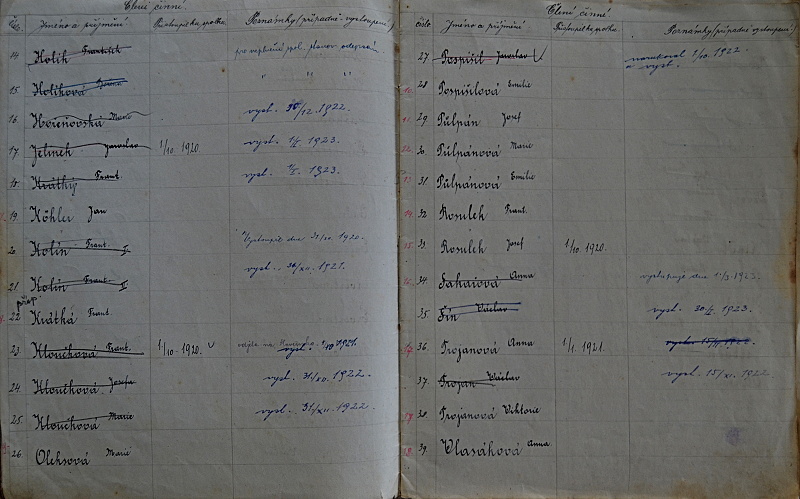 Členi činní.
Čís. Jméno a příjmení Přistoupil k spolku Poznámky (případné vystoupení)
14 Holík František
15 Holíková " " "
16 Hořeňovská Marie vyst. /12. 1922.
17 Jelinek Jaroslav 1/10. 1920. vyst. 1/I. 1923.
18 Krátký Frant. vyst. 1/I. 1923.
19 Köhler Jan
20 Kolín Frant. I. Vystoupil dne 31/10. 1920.
21 Kolín Frant. II. vyst. 30/XII. 1921.
22 Krátká Frant.
23. Kloučková Frant. 1/10. 1920. vyst. 1/10 1921.
24. Kloučková Josefa vyst. 31/XII. 1922.
25. Kloučková Marie vyst. 31/XII. 1922.
26. Oleksová Marie
Členi činní.
číslo Jméno a příjmení Přistoupil k spolku Poznámky (případné vystoupení)
27 Pospíšil Jaroslav narukoval 1/10. 1922.
a vyst.
28 Pospíšilová Emilie
29 Půlpán Josef
30 Půlpánová Marie
31. Půlpánová Emilie
32 Rosulek Frant.
33 Rosulek Josef 1/10. 1920.
34. Anna vystupuje dne 1923.
35. Šín Václav vyst. 30/I. 1923.
36. Trojanová Anna 1/1. 1921.
37. Trojan Václav vyst. 15/XI. 1922
38 Trojanová Viktorie
39 Vlasáková Anna